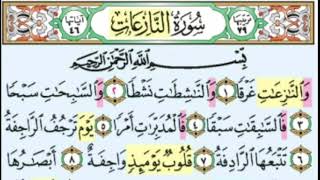 ترتيبها ٧٩ سُورَةُ النَّازِعَاتِ آياتها ٤٦
بِسْمِ اللَّهِ الرَّحْمَٰنِ الرَّحِيمِ
وَالنَّازِعَاتِ غَرْقًا ١ وَالنَّاشِطَاتِ نَشْطًا ٢ وَالسَّابِحَاتِ سَبْحًا
٣ فَالسَّابِقَاتِ سَبْقًا ٤ فَالْمُدَبِّرَاتِ أَمْرًا ٥ يَوْمَ تَرْجُفُ الرَّاجِفَةُ
٦ تَتْبَعُهَا الرَّادِفَةُ ٧ قُلُوبٌ يَوْمَئِذٍ وَاجِفَةٌ ٨ أَبْصَارُهَا